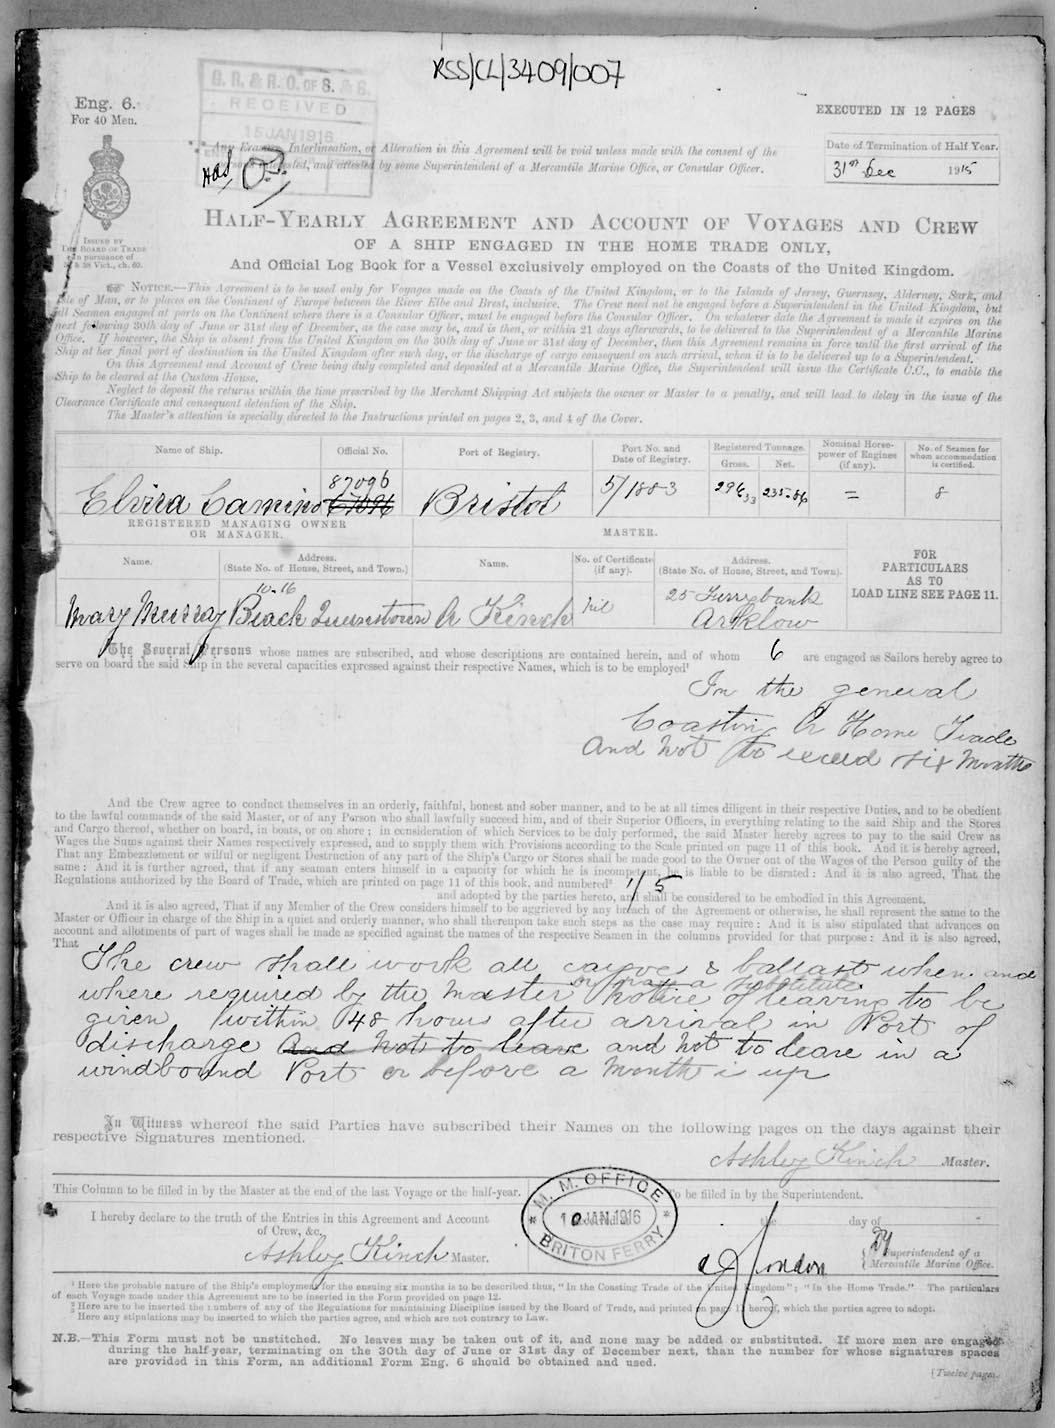 RSS/CL/3409/007
Eng. 6.
For 40 Men.
EXECUTED IN 12 PAGES
D. R. & R. O. OF S. & S.
RECEIVED
15 JAN 1916
Any Erasure, Interlineation, or Alteration in this Agreement will be void unless made with the consent of the
interested, and attested by some Superintendent of a Mercantile Marine Office, or Consular Officer.
Date of Termination of Half Year.
31st Dec 1915
HALF-YEARLY AGREEMENT AND ACCOUNT OF VOYAGES AND CREW
OF A SHIP ENGAGED IN THE HOME TRADE ONLY,
And Official Log Book for a Vessel exclusively employed on the Coasts of the United Kingdom.
ISSUED BY
THE BOARD OF TRADE
in pursuance of
& 58 Vict., ch. 60.
NOTICE.—This Agreement is to be used only for Voyages made on the Coasts of the United Kingdom, or to the Islands of Jersey, Guernsey, Alderney, Sark, and
Isle of Man, or to places on the Continent of Europe between the River Elbe and Brest, inclusive. The Crew need not be engaged before a Superintendent in the United Kingdom, but
all Seamen engaged at ports on the Continent where there is a Consular Officer, must be engaged before the Consular Officer. On whatever date the Agreement is made it expires on the
next following 30th day of June or 31st day of December, as the case may be, and is then, or within 21 days afterwards, to be delivered to the Superintendent of a Mercantile Marine
Office. If however, the Ship is absent from the United Kingdom on the 30th day of June or 31st day of December, then this Agreement remains in force until the first arrival of the
Ship at her final port of destination in the United Kingdom after such day, or the discharge of cargo consequent on such arrival, when it is to be delivered up to a Superintendent.
On this Agreement and Account of Crew being duly completed and deposited at a Mercantile Marine Office, the Superintendent will issue the Certificate C.C., to enable the
Ship to be cleared at the Custom House.
Neglect to deposit the returns within the time prescribed by the Merchant Shipping Act subjects the owner or Master to a penalty, and will lead to delay in the issue of the
Clearance Certificate and consequent detention of the Ship.
The Master's attention is specially directed to the Instructions printed on pages 2, 3, and 4 of the Cover.
Name of Ship. Official No. Port of Registry. Port No. and Date of Registry. Registered Tonnage. Gross. Net. Nominal Horse-power of Engines (if any). No. of Seamen for whom accommodation is certified.
Elvira Camino 87096 Bristol 5/1883 296.33 235.86 = 8
REGISTERED MANAGING OWNER
OR MANAGER.
MASTER.
Name. Address. (State No. of House, Street, and Town.) Name. No. of Certificate (if any). Address. (State No. of House, Street, and Town).
FOR
PARTICULARS
AS TO
LOAD LINE SEE PAGE 11.
10.16
Mary Murray Beach Queenstown A Kinch Nil 25 Ferrybank
Arklow
The Several Persons whose names are subscribed, and whose descriptions are contained herein, and of whom 6 are engaged as Sailors hereby agree to
serve on board the said Ship in the several capacities expressed against their respective Names, which is to be employed¹
In the general
Coasting Or Home Trade
And Not to exceed six Months
And the Crew agree to conduct themselves in an orderly, faithful, honest and sober manner, and to be at all times diligent in their respective Duties, and to be obedient
to the lawful commands of the said Master, or of any Person who shall lawfully succeed him, and of their Superior Officers, in everything relating to the said Ship and the Stores
and Cargo thereof, whether on board, in boats, or on shore; in consideration of which Services to be duly performed, the said Master hereby agrees to pay to the said Crew as
Wages the Sums against their Names respectively expressed, and to supply them with Provisions according to the Scale printed on page 11 of this book. And it is hereby agreed,
That any Embezzlement or wilful or negligent Destruction of any part of the Ship's Cargo or Stores shall be made good to the Owner out of the Wages of the Person guilty of the
same: And it is further agreed, that if any seaman enters himself in a capacity for which he is incompetent, he is liable to be disrated: And it is also agreed, That the
Regulations authorized by the Board of Trade, which are printed on page 11 of this book, and numbered² 1/5
and adopted by the parties hereto, and shall be considered to be embodied in this Agreement.
And it is also agreed, That if any Member of the Crew considers himself to be aggrieved by any breach of the Agreement or otherwise, he shall represent the same to the
Master or Officer in charge of the Ship in a quiet and orderly manner, who shall thereupon take such steps as the case may require: And it is also stipulated that advances on
account and allotments of part of wages shall be made as specified against the names of the respective Seamen in the columns provided for that purpose: And it is also agreed,
That
The crew shall work all cargoes & ballast when and
or pray a substitute
where required by the master notice of leaving to be
given within 48 hours after arrival in Port of
discharge And Not to leave and not to leave in a
windbound Port or before a month is up
In Witness whereof the said Parties have subscribed their Names on the following pages on the days against their
respective Signatures mentioned.
Ashley Kinch Master.
This Column to be filled in by the Master at the end of the last Voyage or the half-year.
To be filled in by the Superintendent.
I hereby declare to the truth of the Entries in this Agreement and Account
of Crew, &c.
Ashley Kinch Master.
M. M. OFFICE
10 JAN 1916
BRITON FERRY
the day of
Dy
Superintendent of a
Mercantile Marine Office.
¹ Here the probable nature of the Ship's employment for the ensuing six months is to be described thus, "In the Coasting Trade of the United Kingdom"; "In the Home Trade." The particulars
of each Voyage made under this Agreement are to be inserted in the Form provided on page 12.
² Here are to be inserted the numbers of any of the Regulations for maintaining Discipline issued by the Board of Trade, and printed on page 11 hereof, which the parties agree to adopt.
³ Here any stipulations may be inserted to which the parties agree, and which are not contrary to Law.
N.B.—This Form must not be unstitched. No leaves may be taken out of it, and none may be added or substituted. If more men are engaged
during the half-year, terminating on the 30th day of June or 31st day of December next, than the number for whose signatures spaces
are provided in this Form, an additional Form Eng. 6 should be obtained and used.
[Twelve pages.